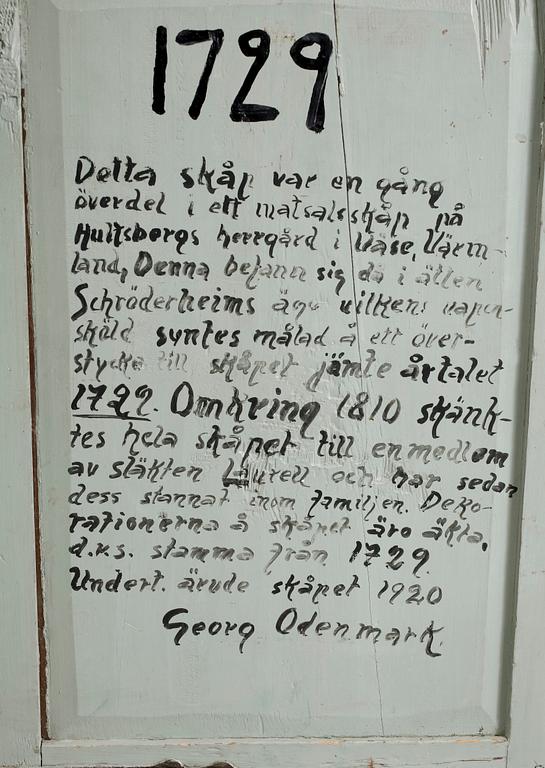 1729
Detta skåp var en gång
överdel i ett matsalsskåp på
Hultsbergs herrgård i Väse, Värm-
land, Denna befann sig då i ätten
Schröderheims ägo vilkens vapen-
sköld syntes målad å ett över-
stycke till skåpet jämte årtalet
1729. Omkring 1810 skänk-
tes hela skåpet till en medlem
av släkten Laurell och har sedan
dess stannat inom familjen. Deko-
rationerna å skåpet äro äkta,
d.v.s. stamma från 1729.
Undert. ärvde skåpet 1920
Georg Odenmark.